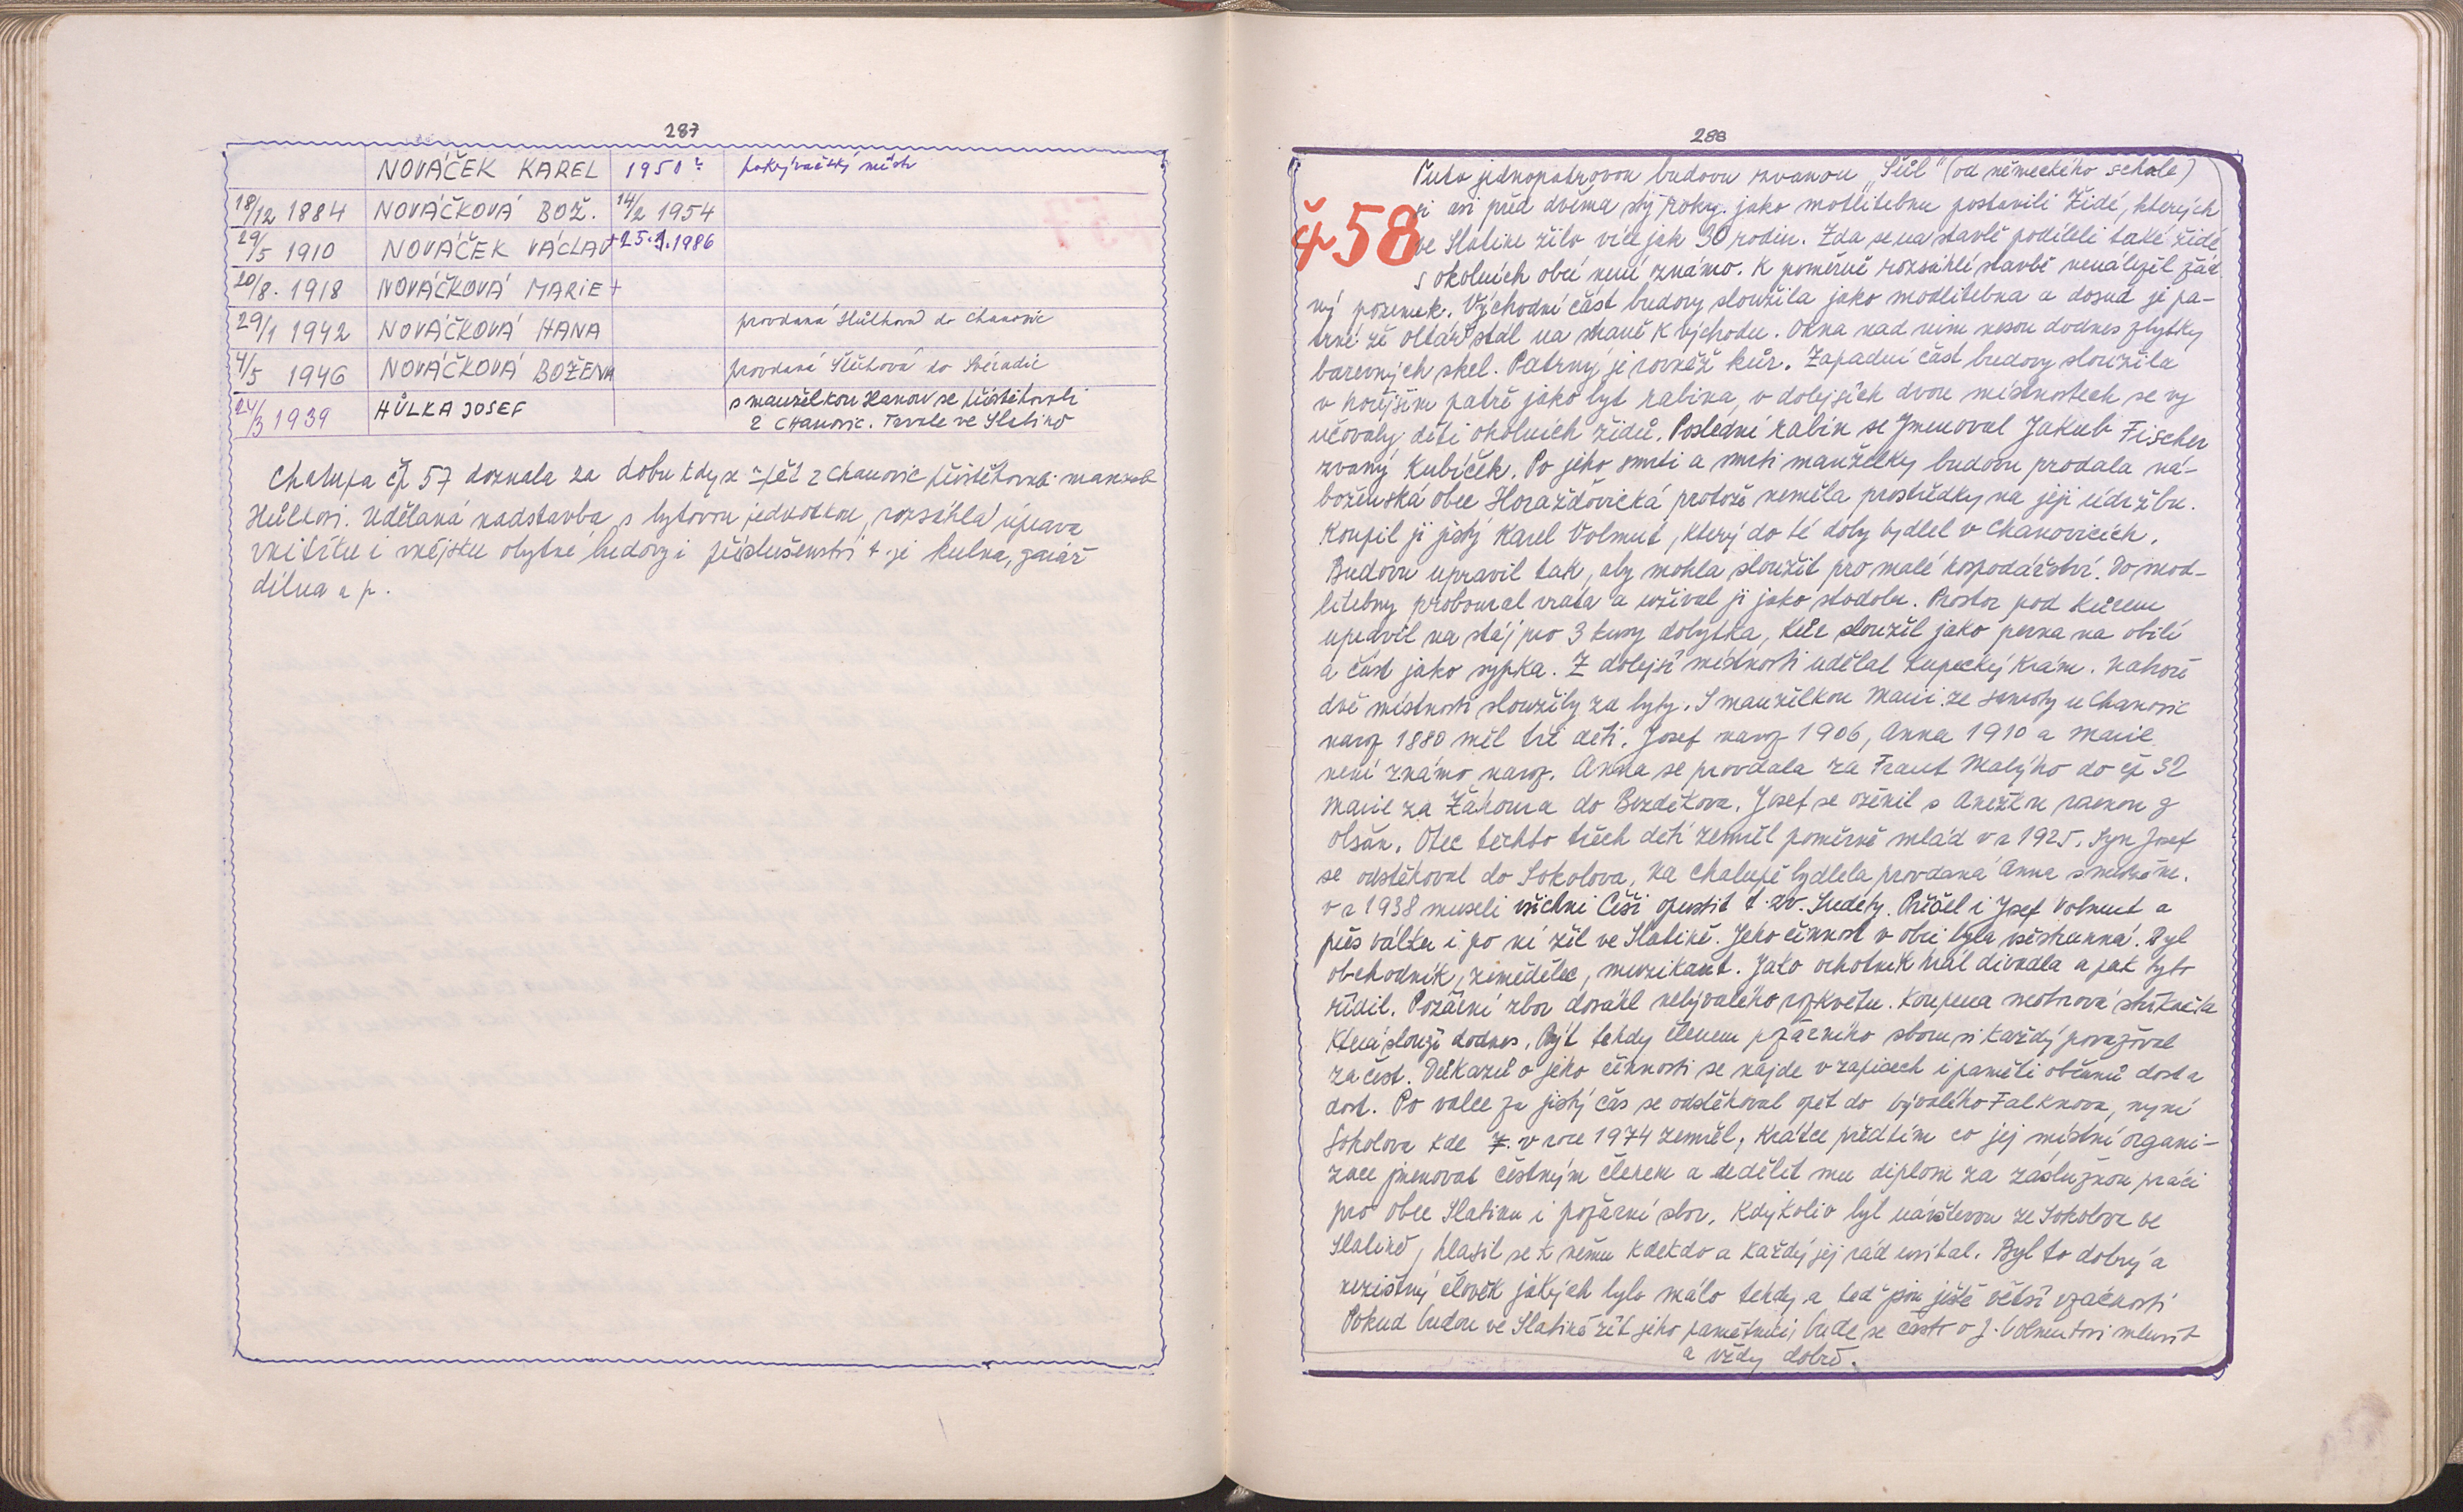 287
NOVÁČEK KAREL 1950 pokrývačský mistr
18/12 1884 NOVÁČKOVÁ BOŽ. 14/2 1954
29/5 1910 NOVÁČEK VÁCLAV +25.1.1986
20/8. 1918 NOVÁČKOVÁ MARIE +
29/1 1942 NOVÁČKOVÁ HANA provdaná Hůlková do Chanovic
4/5 1946 NOVÁČKOVÁ BOŽENA provdaná do Svéradic
24/3 1939 HŮLKA JOSEF s manželkou Hanou se přistěhovali
z Chanovic. Trvale ve Slatině
Chalupa čp 57 doznala za dobu kdy se zpět z Chanovic přistěhovali manželé
Hůlkovi. Udělaná nadstavba s bytovou jednotkou, rozsáhlá úprava
vnitřku i vnějšku obytné budovy i příslušenství t.j. kulna, garáž
dílna a p.
288
čp 58
Tuto jednopatrovou budovu zvanou „Šůl" (od německého schule)
si asi před dvěma sty roky. jako motlitebnu postavili Židé, kterých
ve Slatině žilo více jak 30 rodin. Zda se na stavbě podíleli také židé
s okolních obcí není známo. K poměrně rozsáhlé stavbě nenáležel žád
ný pozemek. Východní část budovy sloužila jako modlitebna a dosud je pa-
trné že oltář stál na straně k východu. Okna nad ním nesou dodnes zbytky
barevných skel. Patrný je rovněž kůr. Západní část budovy sloužila
v hořejším patře jako byt rabína, v dolejších dvou místnostech se vy
učovaly děti okolních židů. Poslední rabín se jmenoval Jakub Fischer
zvaný Kubíček. Po jeho smrti a smrti manželky budovu prodala ná-
boženská obec Horažďovická protože neměla prostředky na její údržbu.
Koupil ji jistý Karel Volmut, který do té doby bydlel v Chanovicích.
Budovu upravil tak, aby mohla sloužit pro malé hospodářství. Do mod-
litebny proboural vrata a užíval ji jako stodolu. Prostor pod kůrem
upravil na stáj pro 3 kusy dobytka, kůr sloužil jako perna na obilí
a část jako sypka. Z dolejší místnosti udělal kupecký krám. Nahoře
dvě místnosti sloužily za byty. S manželkou Marií ze samoty u Chanovic
naroz 1880 měl tři děti. Josef naroz 1906, Anna 1910 a Marie
není známo naroz. Anna se provdala za Frant Malýho do čp 32
Marie za Žáhoura do Bezděkova. Josef se oženil s Anežkou z
Olšan. Otec těchto třech dětí zemřel poměrně mlád v r 1925. Syn Josef
se odstěhoval do Sokolova, na chalupě bydlela provdaná Anna s mužem.
v r 1938 museli všichni Češi opustit t.zv. Sudety. Přišel i Josef Volmut a
přes válku i po ní žil ve Slatině. Jeho činnost v obci byla všestranná. Byl
obchodník, zemědělec, muzikant. Jako ochotník hrál divadla a pak tyto
řídil. Požární zbor dosáhl nebývalého rozkvětu. Koupena motorová stříkačka
která slouží dodnes. Být tehdy členem požárního sboru si každý považoval
za čest. Důkazů o jeho činnosti se najde v zápisech i paměti občanů dost a
dost. Po válce za jistý čas se odstěhoval opět do bývalého Falknova, nyní
Sokolova kde 7. v roce 1974 zemřel, krátce předtím co jej místní organi-
zace jmenovat čestným členem a udělit mu diplom za záslužnou práci
pro obec Slatinu i požární sbor. Kdykoliv byl návštěvou ze Sokolova ve
Slatině, hlásil se k němu kdekdo a každý jej rád uvítal. Byl to dobrý a
nezištný člověk jakých bylo málo tehdy a teď jsou ještě větší vzácností
Pokud budou ve Slatině žít jeho pamětníci, bude se často o J. Volmutovi mluvit
a vždy dobře.